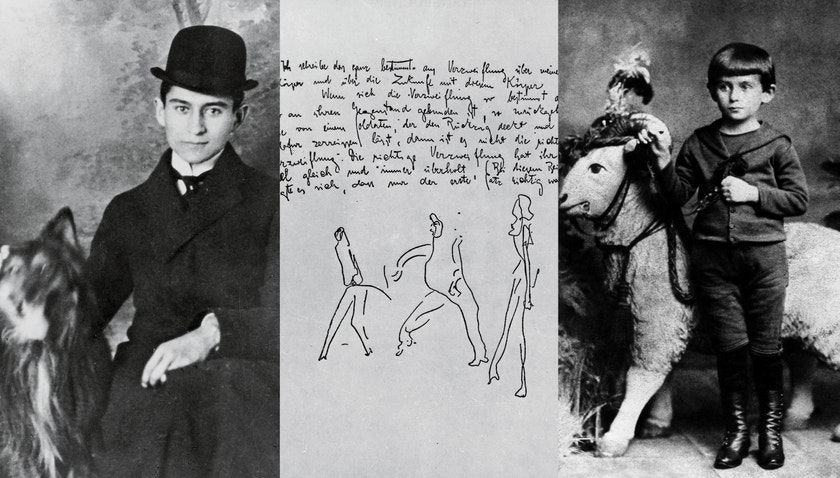 Ich schreibe das ganz bestimmt aus Verzweiflung über meine
örper und über die Zukunft mit diesem Körper
Wenn sich die Verzweiflung so bestimmt
an ihren Gegenstand gebunden ist, so zurückge
e von einem Soldaten, der den Rückzug deckt und
dafür zerreissen lässt, dann ist es nicht die richt
rzweiflung. Die richtige Verzweiflung hat ihr
el gleich und immer überholt, (Bei diesem Bei
gte es sich, dass nur der erste Satz richtig wa